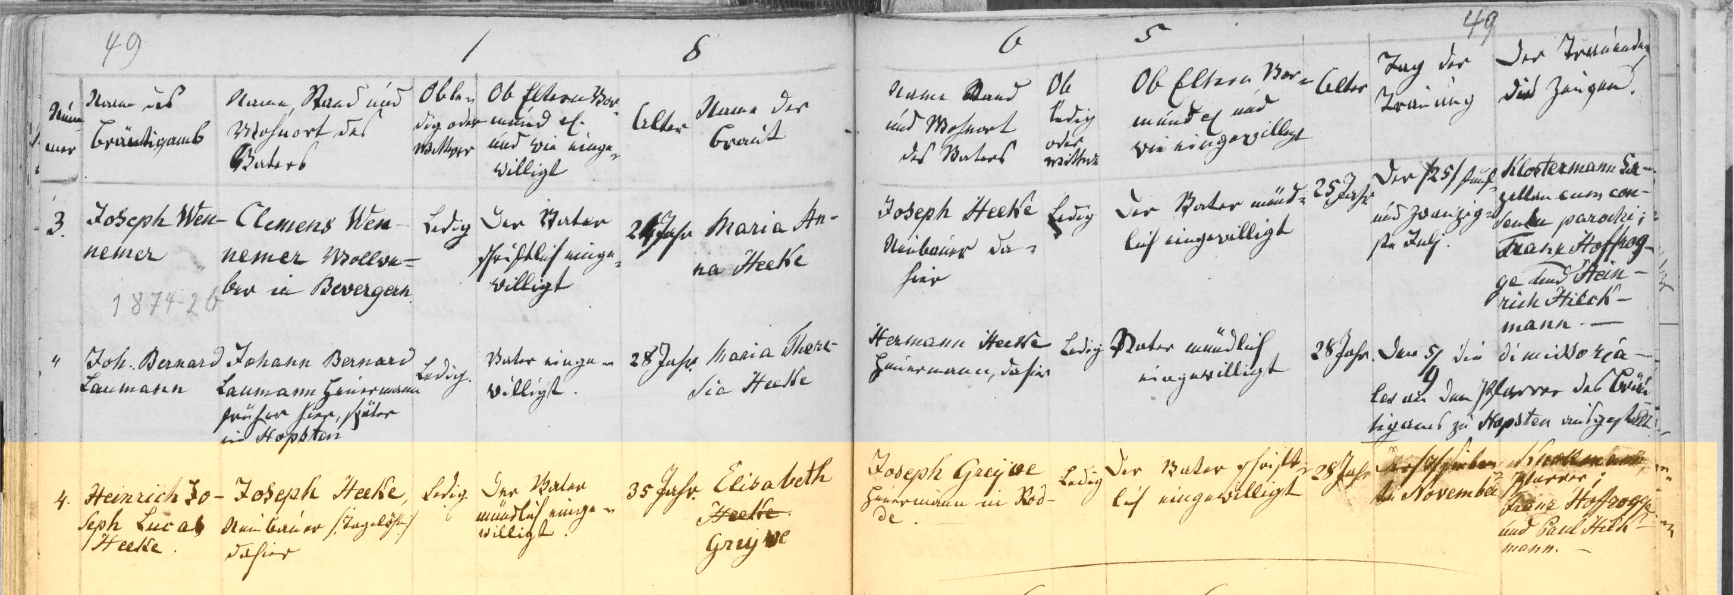 49
1
8
6
5
49
Num-
mer
Name des
Bräutigams
Name, Stand und
Wohnort des
Vaters
Ob le-
dig oder
Wittwer
Ob Eltern Vor-
mund
und wie einge-
willigt
Alter
Name der
Braut
Name Stand
und Wohnort
des Vaters
Ob
ledig
oder
Wittwe
Ob Eltern Vor-
mund und
wie eingewilligt
Alter
Tag der
Trauung
Der Trauende,
die Zeugen.
3.
Joseph Wen-
nemer
1874-26
Clemens Wen-
nemer Wollwe-
ber in Bevergern
Ledig
Der Vater
schriftlich einge-
willigt
Jahr
Maria An-
na Heeke
Joseph Heeke
Neubauer da-
hier
Ledig
Der Vater münd-
lich eingewilligt
25 Jahr
Der /25/ fünf
und zwanzig-
ste July.
Klostermann
cum con-
parochi;
Franz Hoffrog-
ge und Hein-
rich Hilck-
mann. —
"
Joh. Bernard
Laumann
Johann Bernard
Laumann Heuermann
früher hier, später
in Hopsten
Ledig.
Vater einge-
willigt.
28 Jahr
Maria There-
sia Heeke
Hermann Heeke
Heuermann, dahier
Ledig
Vater mündlich
eingewilligt
28 Jahr.
Den 5/9 die dimissoria-
les an den Pfarrer des Bräu-
tigams zu Hopsten ausgestellt
4.
Heinrich Jo-
seph Lucas
Heeke.
Joseph Heeke,
Neubauer
dahier
Ledig
Der Vater
mündlich einge-
willigt.
35 Jahr
Elisabeth
Heeke
Greywe
Joseph Greywe
Heuermann in Rod-
de.
Ledig
Der Vater schrift-
lich eingewilligt
28 Jahr
November
Pfarrer;
Franz Hoffrogge
und Paul Hilck-
mann. —